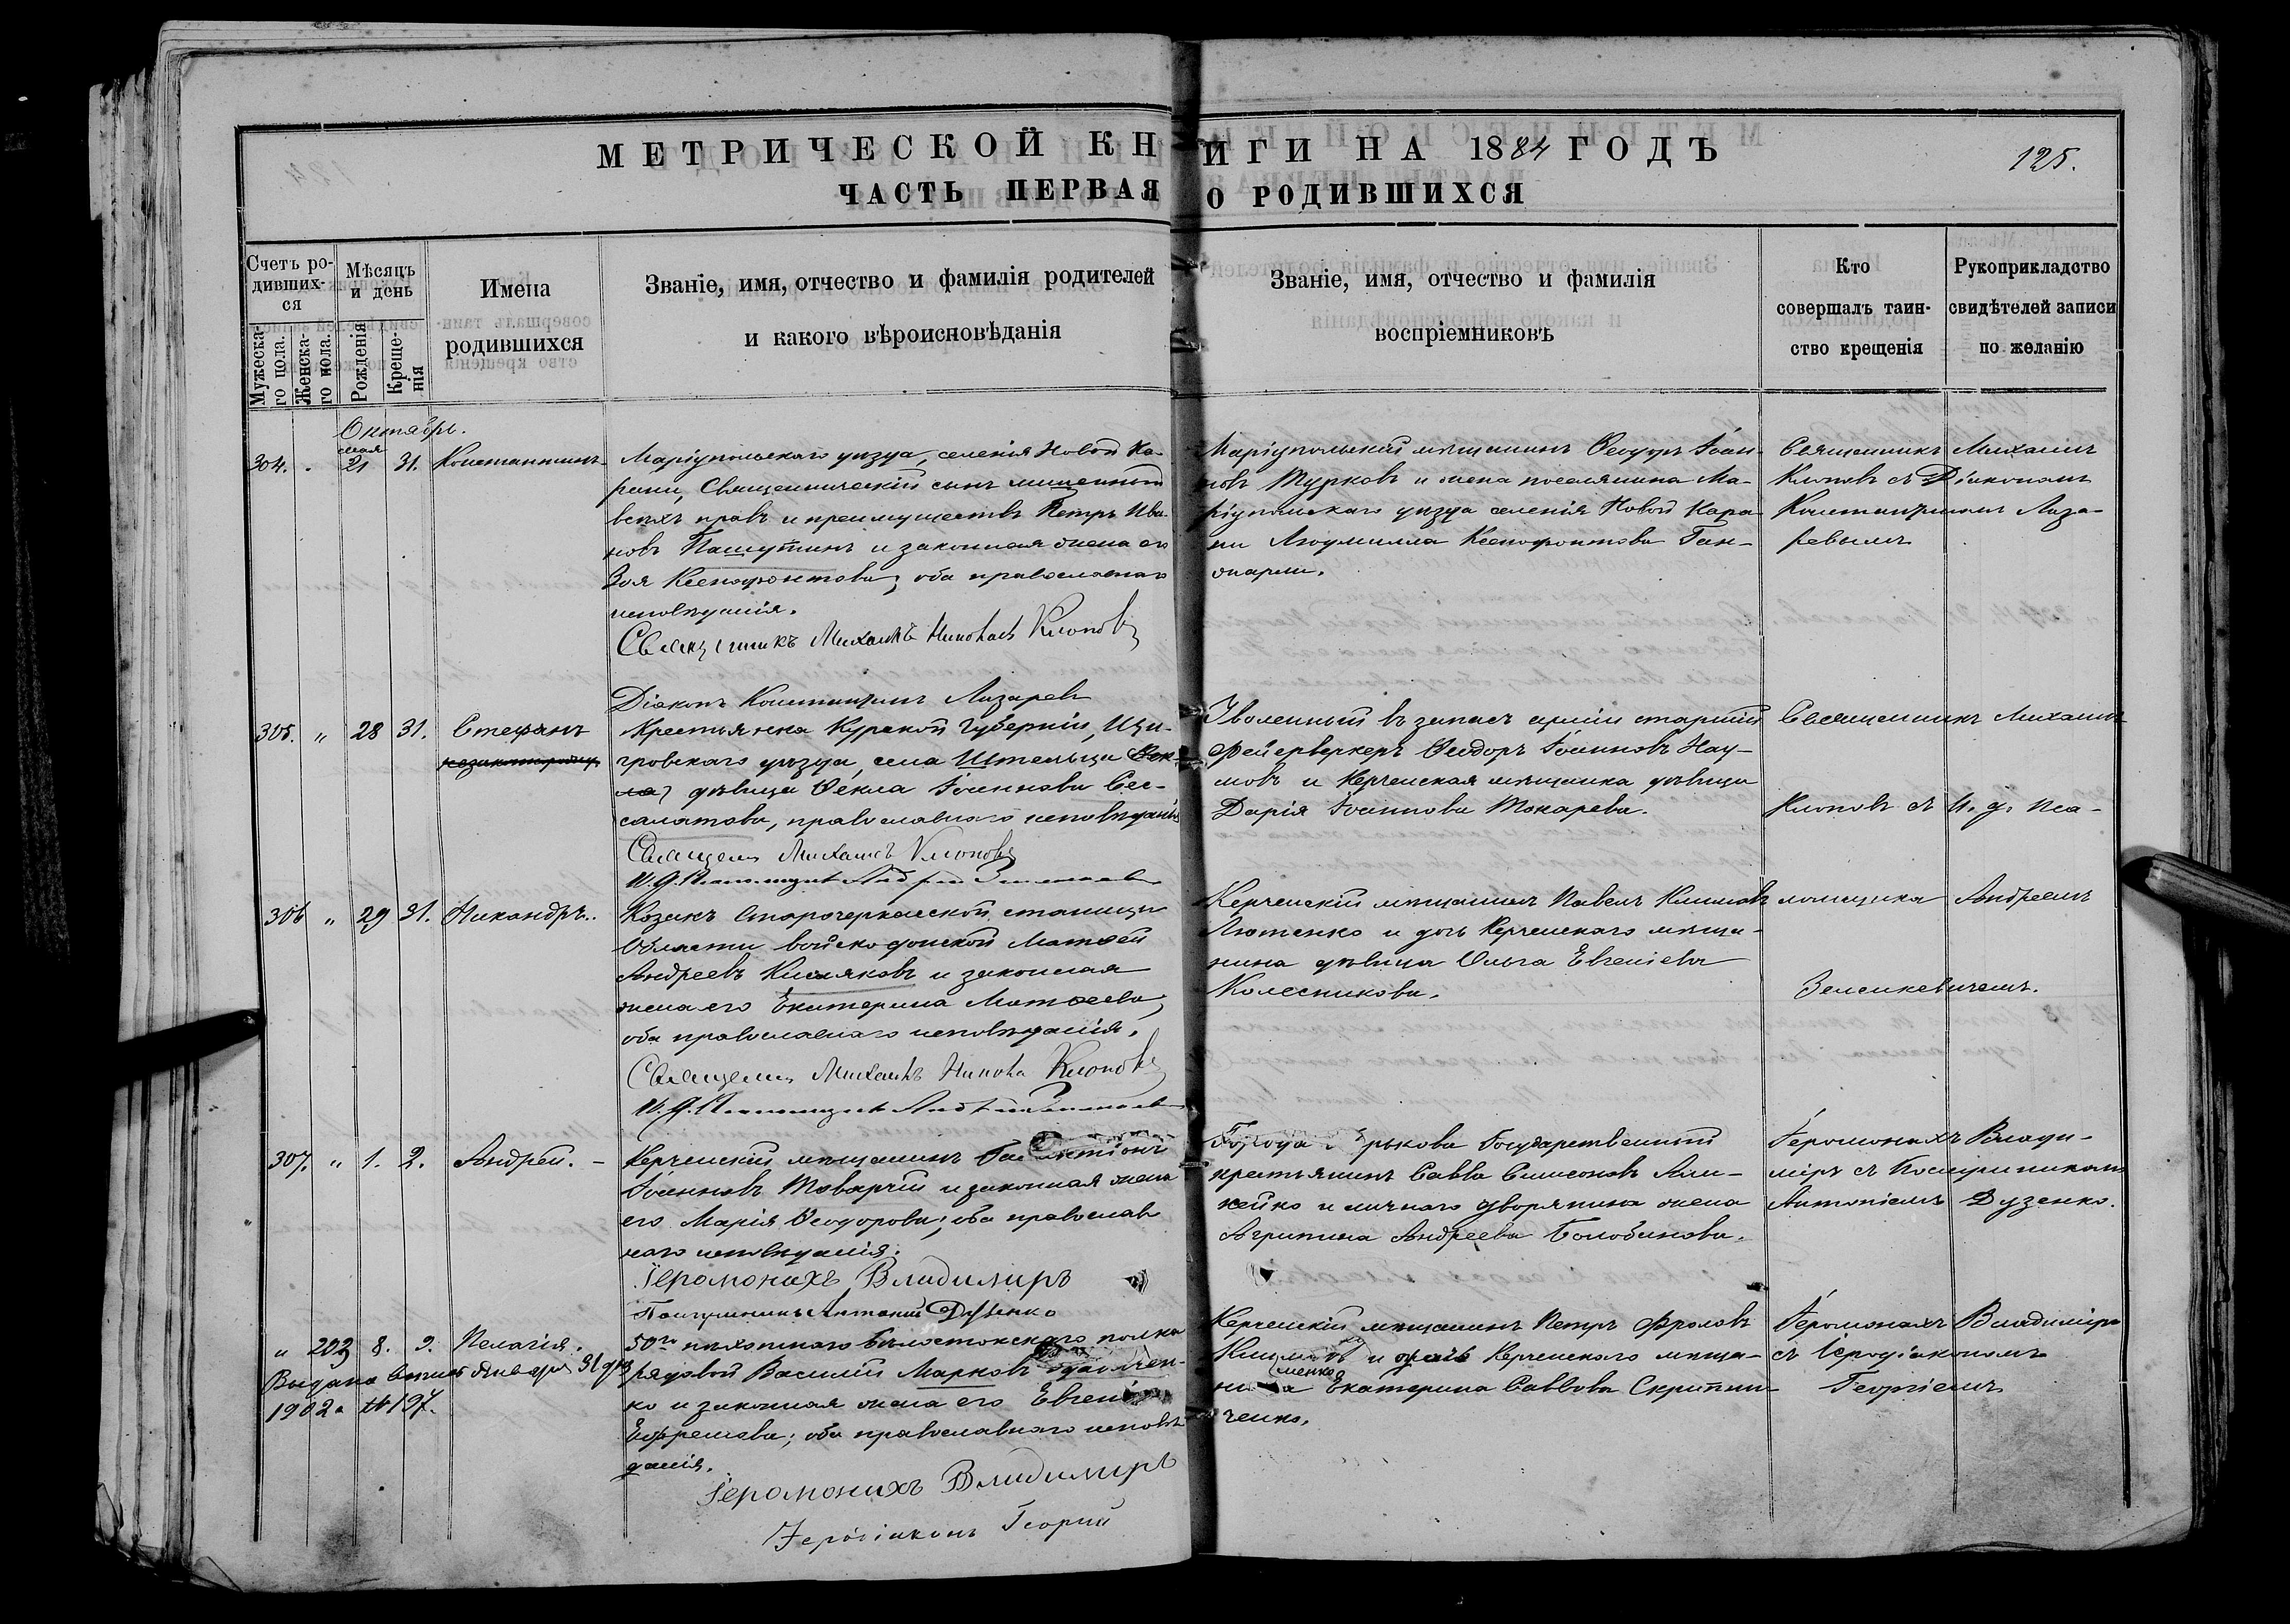 МЕТРИЧЕСКОЙ КНИГИ НА 1884 ГОДЪ
125.
ЧАСТЬ ПЕРВАЯ О РОДИВШИХСЯ
Счетъ ро-
дивших-
ся
Мужеска-
го пола.
Женска-
го пола.
Мѣсяцъ
и день
Рожденія
Креще-
нія
Имена
родившихся
Званіе, имя, отчество и фамилія родителей
и какого вѣроисповѣданія
Званіе, имя, отчество и фамилія
воспріемниковъ
Кто
совершалъ таин-
ство крещенія
Рукоприкладство
свидѣтелей записи
по желанію
Октябрь.
304. . мая 21 31. Константинъ
Маріупольскаго уѣзда, селенія Новой Ка-
рани, Священническій сынъ лишенный
всѣхъ правъ и преимуществъ Петръ Ива-
новъ Пашутинъ и законная жена его
Зоя Ксенофонтова; оба православнаго
исповѣданія.
Священникъ Михаилъ Клоповъ
Діаконъ Константинъ Лазаревъ
Маріупольскій мѣщанинъ Ѳеодоръ Іоан-
новъ Турковъ и жена поселянина Ма-
ріупольскаго уѣзда селенія Новой Кара-
ни Людмилла Ксенофонтова Ган-
жарли.
Священникъ Михаилъ
Клоповъ съ Діакономъ
Константиномъ Лаза-
ревымъ
305. " 28 31. Стефанъ
Крестьянка Курской Губерніи, Щи-
гровскаго уѣзда, села
дѣвица Ѳекла Іоаннова Бес-
салатова, православнаго исповѣданія
Священ Михаилъ Клоповъ
И. д. Псаломщика Андрей
Уволенный въ запасъ арміи старшій
фейерверкеръ Ѳеодоръ Іоанновъ Нау-
мовъ и Керченская мѣщанка дѣвица
Дарія Іоаннова Токарева.
Священникъ Михаилъ
Клоповъ съ И. д. Пса-
306 " 29 31. Никандръ.
Козакъ Старочеркасской станицы
Области войска донской Матѳей
Андреевъ Кисляковъ и законная
жена его Екатерина Матѳеева;
оба православнаго исповѣданія.
Священ Михаилъ Клоповъ
И. д. Псаломщика Андрей
Керченскій мѣщанинъ Павелъ Климовъ
Лютенко и дочь Керченскаго мѣща-
нина дѣвица Ольга Евгеніева
Колесникова.
ломщика Андреемъ
Зенкевичемъ.
307. " 1. 2. Андрей. -
Керченскій мѣщанинъ
Іоанновъ Товарчій и законная жена
его Марія Ѳеодорова; оба православ
наго исповѣданія.
Іеромонахъ Владимиръ
Послушникъ Антоній Дузенко
Города Государственный
крестьянинъ Савва Симеоновъ Али-
кейко и личнаго дворянина жена
Агрипина Андреева Болобанова.
Іеромонахъ Влади-
міръ съ Послушникомъ
Антоніемъ Дузенко.
" 203 8. 9. Пелагія.
Выдана января 31 дня
1902 г. № 197.
50го пѣхотнаго Бѣлостокскаго полка
рядовой Василій Марковъ
ко и законная жена его Евгенія
Ефремова; оба православнаго исповѣ
данія.
Іеромонахъ Владимиръ
Іеродіаконъ Георгій
Керченскій мѣщанинъ Петръ Фроловъ
и дочь Керченскаго мѣща-
Екатерина Саввова Скрипни-
ченко.
Іеромонахъ Владиміръ
съ Іеродіакономъ
Георгіемъ